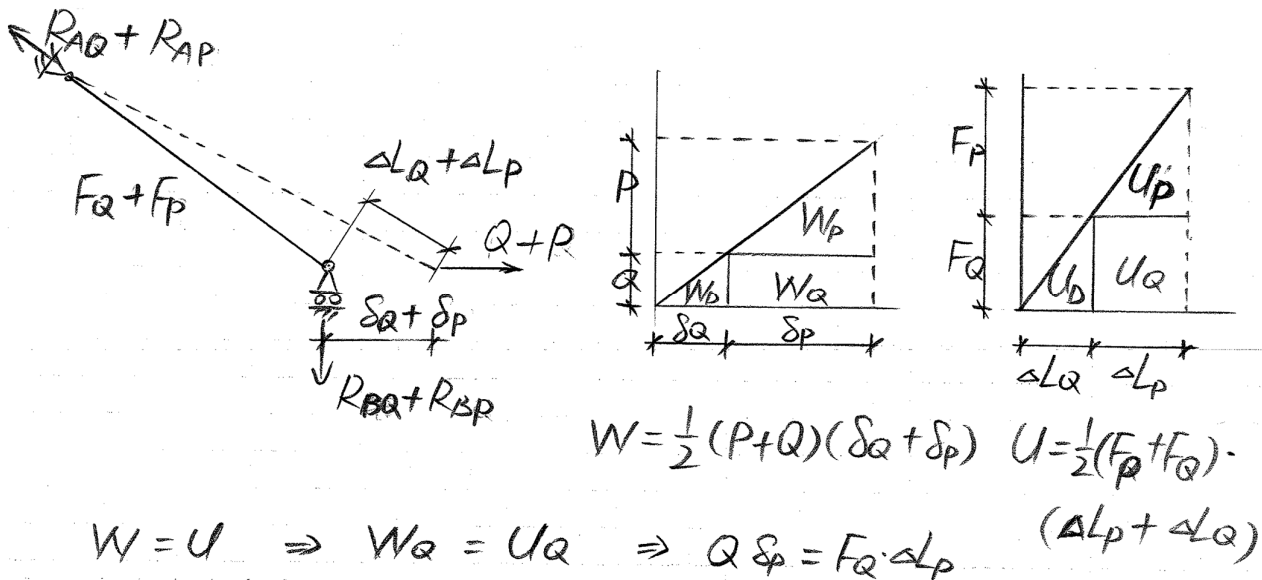 R_AQ + R_AP
F_Q + F_P
ΔL_Q + ΔL_P
Q + P
δ_Q + δ_P
R_BQ + R_BP
P
Q
W_P
W_D
W_Q
δQ
δ_P
F_P
F_Q
U_P
U_D
U_Q
ΔL_Q
ΔL_P
W = 1/2 (P+Q)(δ_Q + δ_P)
U = 1/2 (F_P + F_Q) ·
(ΔL_P + ΔL_Q)
W = U ⇒ W_Q = U_Q ⇒ Q δ_P = F_Q · ΔL_P